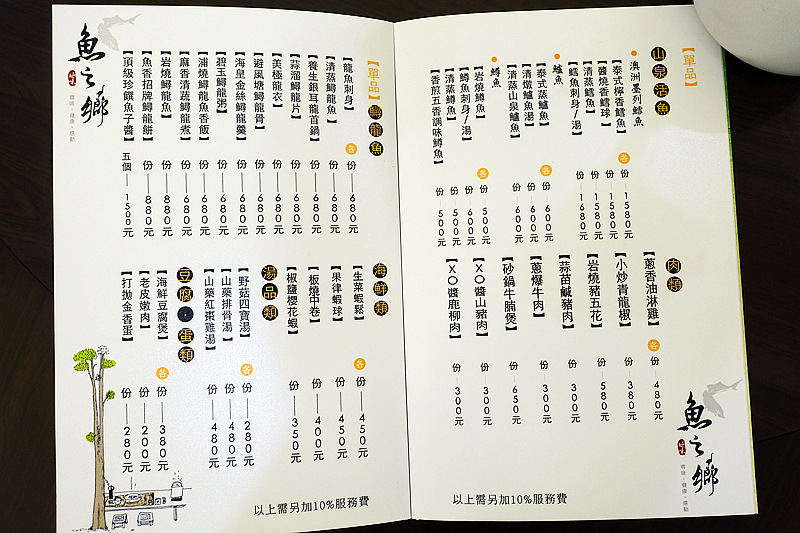 【單品】
山泉活魚
●澳洲墨列鱈魚
【泰式檸香鱈魚】 各 份 1580元
【醬燒香鱈球】 份 1580元
【清蒸鱈魚】 份 1580元
【鱈魚刺身/湯】 份 1680元
●鱸魚
【泰式蒸鱸魚】 各 份 600元
【清燉鱸魚湯】 份 600元
【清蒸山泉鱸魚】 份 600元
●鱒魚
【岩燒鱒魚】 各 份 500元
【鱒魚刺身/湯】 份 600元
【清蒸鱒魚】 份 500元
【香煎五香調味鱒魚】 份 500元
肉類
【蔥香油淋雞】 各 份 480元
【小炒青龍椒】 份 380元
【岩燒豬五花】 份 580元
【蒜苗鹹豬肉】 份 300元
【蔥爆牛肉】 份 300元
【砂鍋牛腩煲】 份 650元
【XO醬山豬肉】 份 300元
【XO醬鹿柳肉】 份 300元
魚之鄉
以上需另加10%服務費
【單品】 鱘龍魚
【龍魚刺身】 各 份 680元
【清蒸鱘龍魚】 份 680元
【養生銀耳龍首鍋】 份 680元
【蒜溜鱘龍片】 份 680元
【美極龍衣】 份 680元
【避風塘鱘龍骨】 份 680元
【海皇金絲鱘龍羹】 份 680元
【碧玉鱘龍粥】 份 680元
【浦燒鱘龍魚香飯】 份 680元
【麻香清蔬鱘龍煮】 份 680元
【岩燒鱘龍魚】 份 880元
【魚香招牌鱘龍餅】 份 880元
【頂級珍饌魚子醬】 五個 1500元
魚之鄉
海鮮類
【生菜蝦鬆】 各 份 450元
【果律蝦球】 份 450元
【板燒中卷】 份 400元
【椒鹽櫻花蝦】 份 350元
湯品類
【野菇四寶湯】 各 份 280元
【山藥排骨湯】 份 480元
【山藥紅棗雞湯】 份 480元
豆腐●蛋類
【海鮮豆腐煲】 各 份 380元
【老皮嫩肉】 份 200元
【打拋金香蛋】 份 280元
以上需另加10%服務費